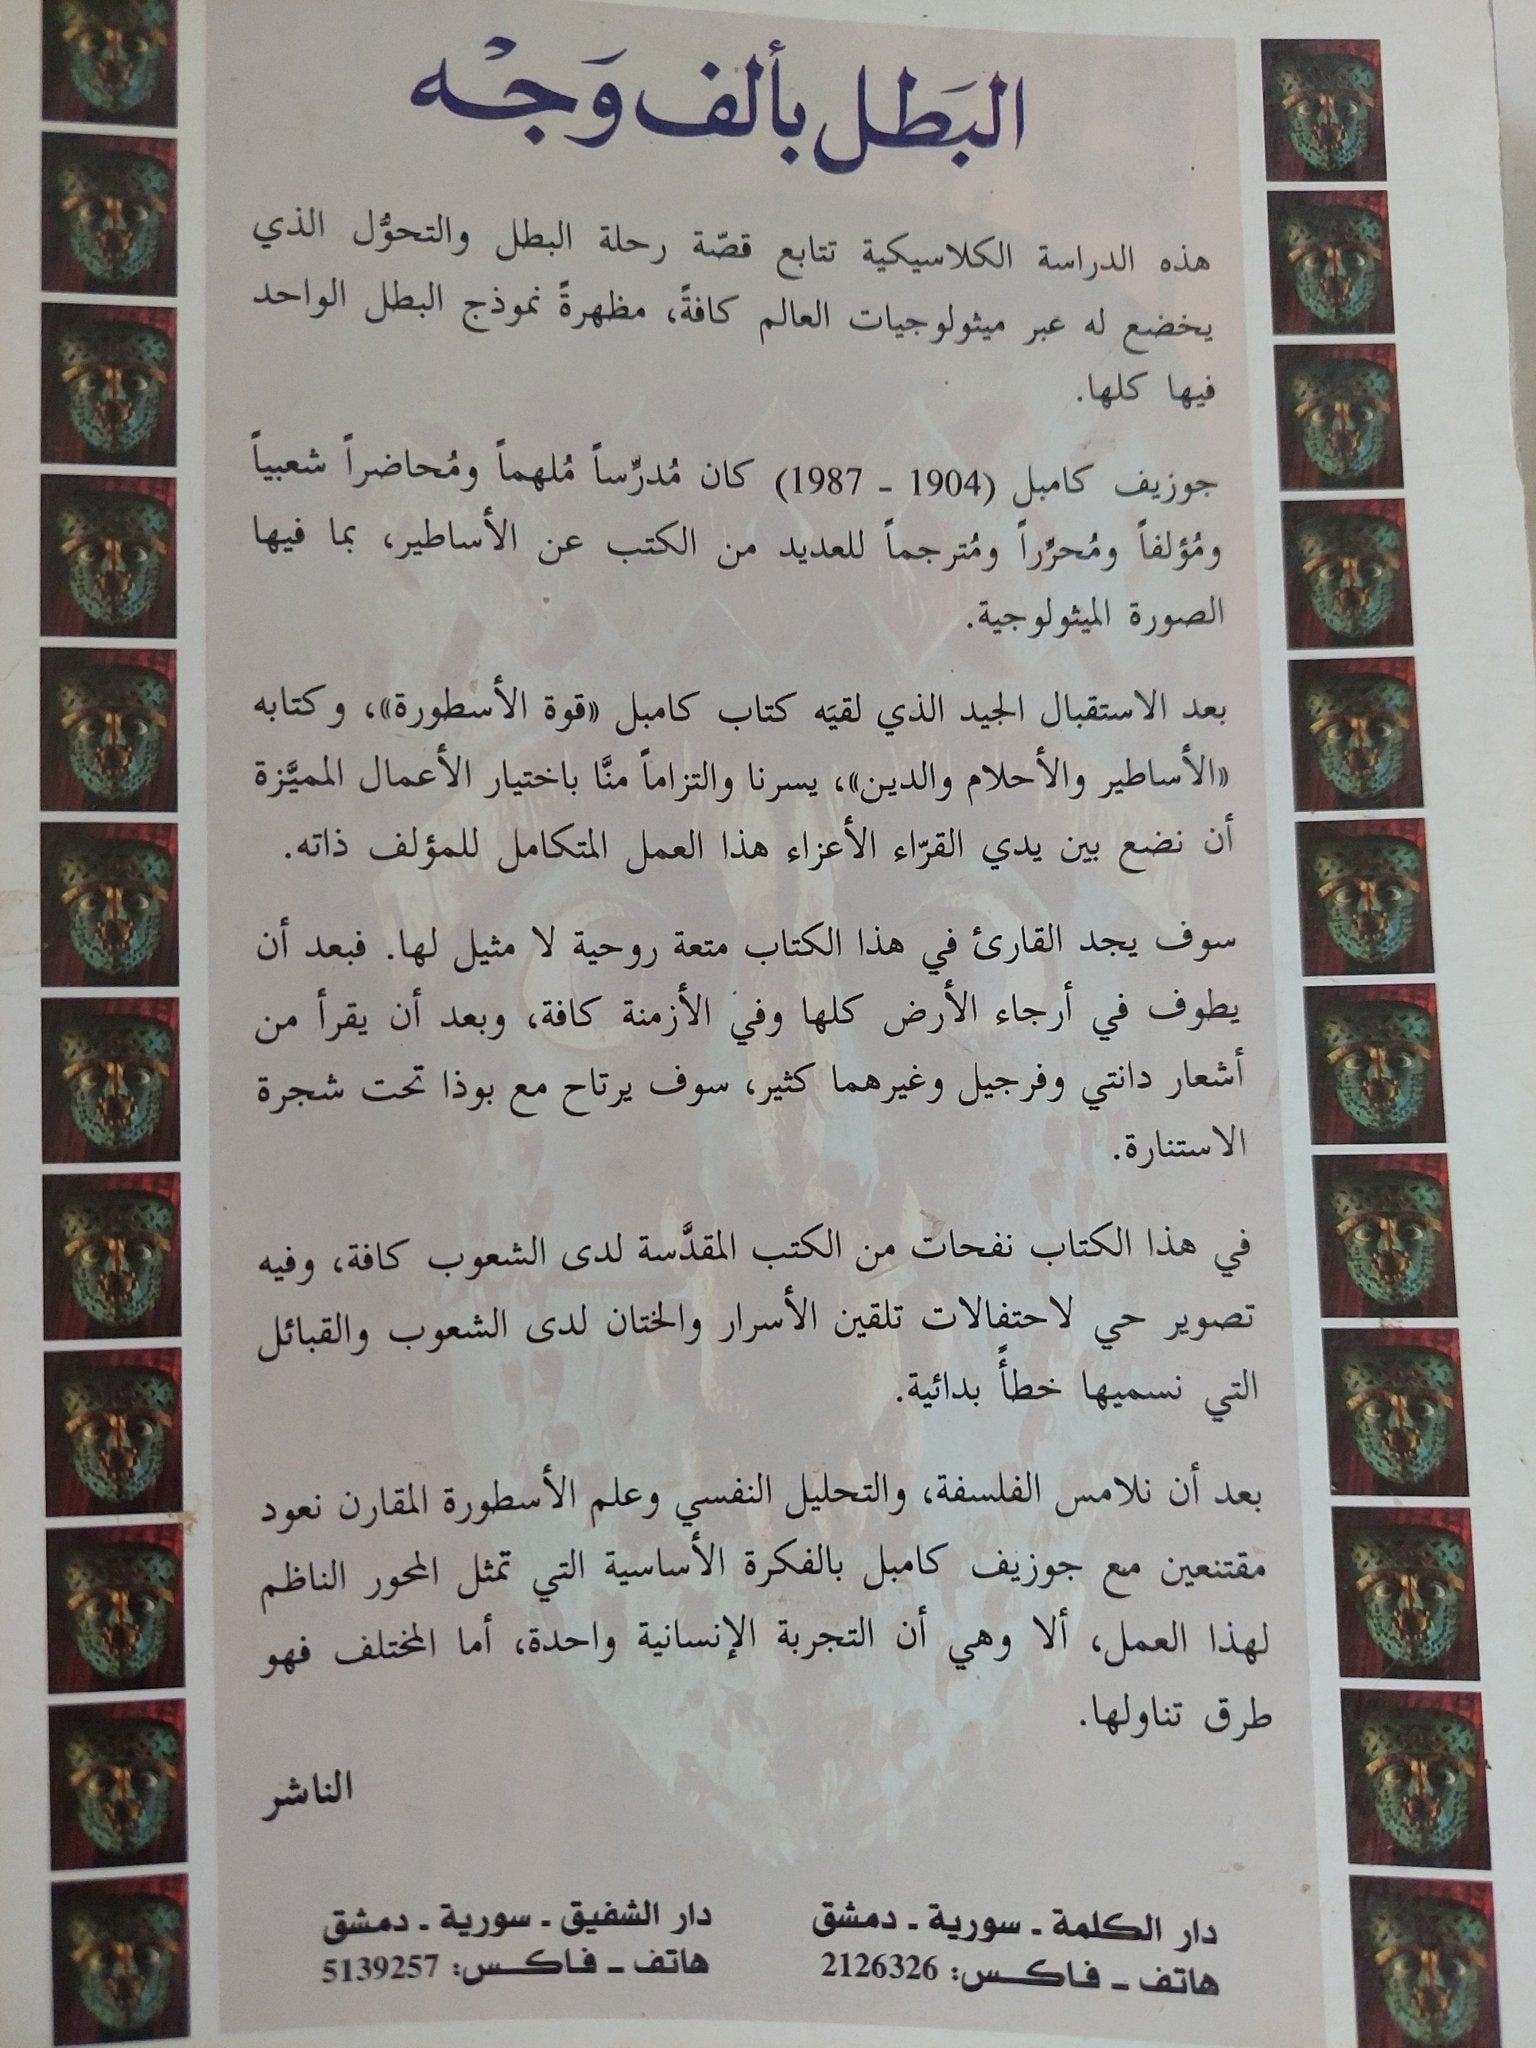 البَطل بألف وَجْه
هذه الدراسة الكلاسيكية تتابع قصّة رحلة البطل والتحوُّل الذي
يخضع له عبر ميثولوجيات العالم كافةً، مظهرةً نموذج البطل الواحد
فيها كلها.
جوزيف كامبل (1904 - 1987) كان مُدرِّساً مُلهماً ومُحاضراً شعبياً
ومُؤلفاً ومُحرِّراً ومُترجماً للعديد من الكتب عن الأساطير، بما فيها
الصورة الميثولوجية.
بعد الاستقبال الجيد الذي لقيَه كتاب كامبل «قوة الأسطورة»، وكتابه
«الأساطير والأحلام والدين»، يسرنا والتزاماً منَّا باختيار الأعمال المميَّزة
أن نضع بين يدي القرّاء الأعزاء هذا العمل المتكامل للمؤلف ذاته.
سوف يجد القارئ في هذا الكتاب متعة روحية لا مثيل لها. فبعد أن
يطوف في أرجاء الأرض كلها وفي الأزمنة كافة، وبعد أن يقرأ من
أشعار دانتي وفرجيل وغيرهما كثير، سوف يرتاح مع بوذا تحت شجرة
الاستنارة.
في هذا الكتاب نفحات من الكتب المقدَّسة لدى الشعوب كافة، وفيه
تصوير حي لاحتفالات تلقين الأسرار والختان لدى الشعوب والقبائل
التي نسميها خطأً بدائية.
بعد أن نلامس الفلسفة، والتحليل النفسي وعلم الأسطورة المقارن نعود
مقتنعين مع جوزيف كامبل بالفكرة الأساسية التي تمثل المحور الناظم
لهذا العمل، ألا وهي أن التجربة الإنسانية واحدة، أما المختلف فهو
طرق تناولها.
الناشر
دار الكلمة - سورية - دمشق
هاتف - فاكس: 2126326
دار الشفيق - سورية - دمشق
هاتف - فاكس: 5139257